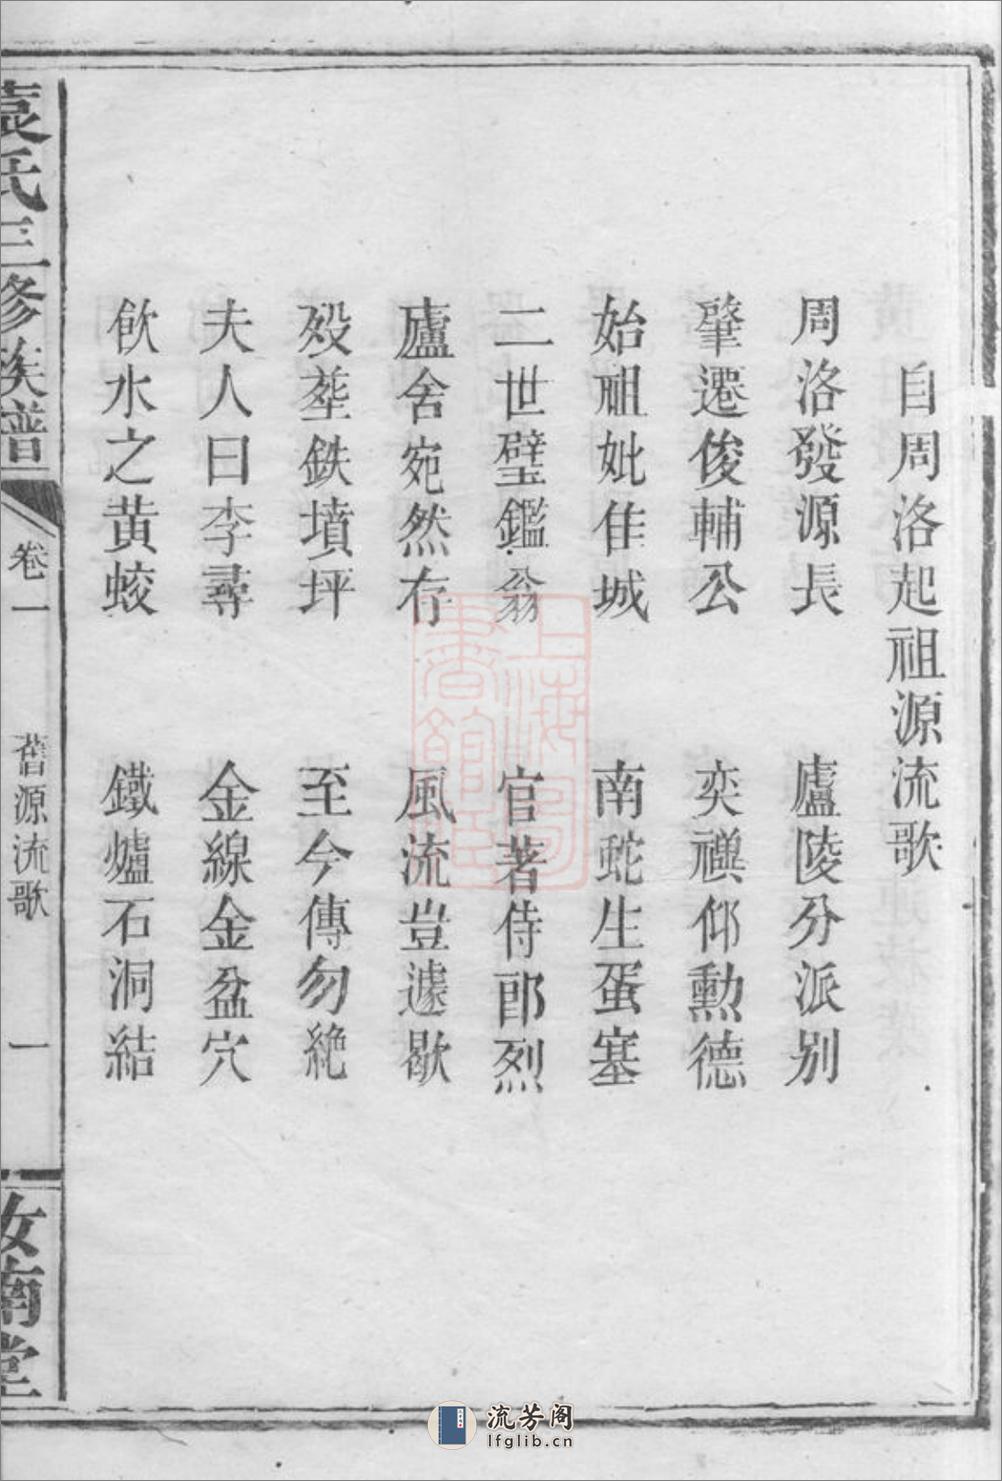 自周洛起祖源流歌
周洛發源長 廬陵分派別
肇遷俊輔公 奕禩仰勳德
始祖妣佳城 南蛇生蛋塞
二世璧鑑翁 官著侍郎烈
廬舍宛然存 風流豈遽歇
歿塟鉄墳坪 至今傳勿絶
夫人曰李尋 金線金盆穴
飲水之黄蛟 鐵爐石洞結
袁氏三修族譜
卷一
舊源流歌
一
汝南堂
上海圖書館藏
流芳阁
lfglib.cn